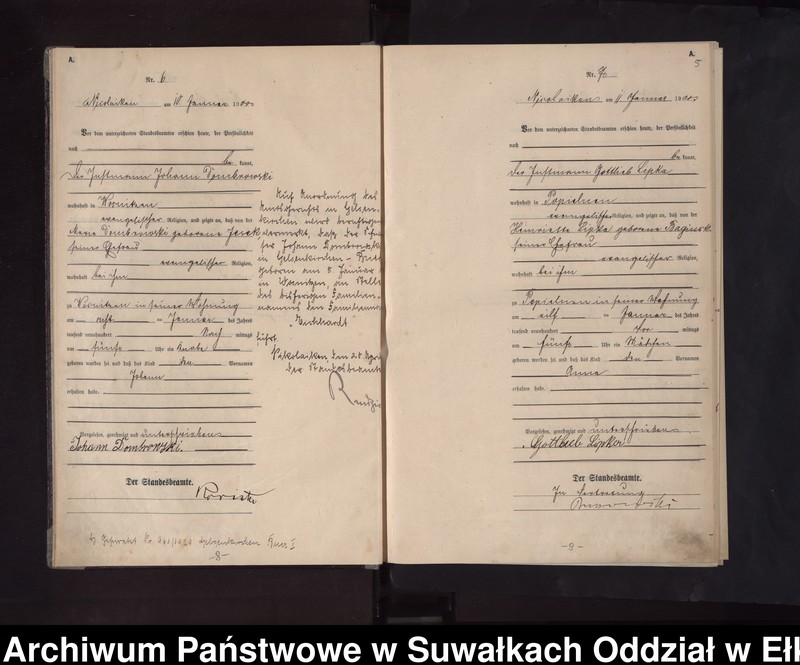 A.
Nr. 6
Nicolaiken am 10 Januar 1900
Vor dem unterzeichneten Standesbeamten erschien heute, der Persönlichkeit
nach
be kannt,
der Instmann Johann Dombrowski
wohnhaft in Wornicken
evangelischer Religion, und zeigte an, daß von der
Dombrowski geborene
seiner Ehefrau
evangelischer Religion,
wohnhaft bei ihm
zu Wornicken in seiner Wohnung
am acht ten Januar des Jahres
tausend neunhundert Nach mittags
um fünf Uhr ein Knabe
geboren worden sei und daß das Kind den Vornamen
Johann
erhalten habe.
Vorgelesen, genehmigt und unterschrieben
Johann Dombrowzki.
Der Standesbeamte.
Auf Anordnung des
Amtsgerichts in Gelsen-
kirchen wird
vermerkt, daß der
Johann Dombrowski
in Gelsenkirchen
geboren am 8. Januar
in an Stelle
des bisherigen Familien-
namens den Familiennamen
führt.
Nikolaiken, den
der Standesbeamte
Gelsenkirchen
-8-
A.
5
Nr. 7
Nicolaiken am 11 Januar 1900
Vor dem unterzeichneten Standesbeamten erschien heute, der Persönlichkeit
nach
be kannt,
der Instmann Gottlieb Lipka
wohnhaft in Popielnen
evangelischer Religion, und zeigte an, daß von der
Henriette Lipka geborene
seiner Ehefrau
evangelischer Religion,
wohnhaft bei ihm
zu Popielnen in seiner Wohnung
am elf ten Januar des Jahres
tausend neunhundert Vor mittags
um fünf Uhr ein Mädchen
geboren worden sei und daß das Kind den Vornamen
Anna
erhalten habe.
Vorgelesen, genehmigt und unterschrieben
Gottlieb Lipka
Der Standesbeamte.
In Vertretung
-9-
Archiwum Państwowe w Suwałkach Oddział w Ełk